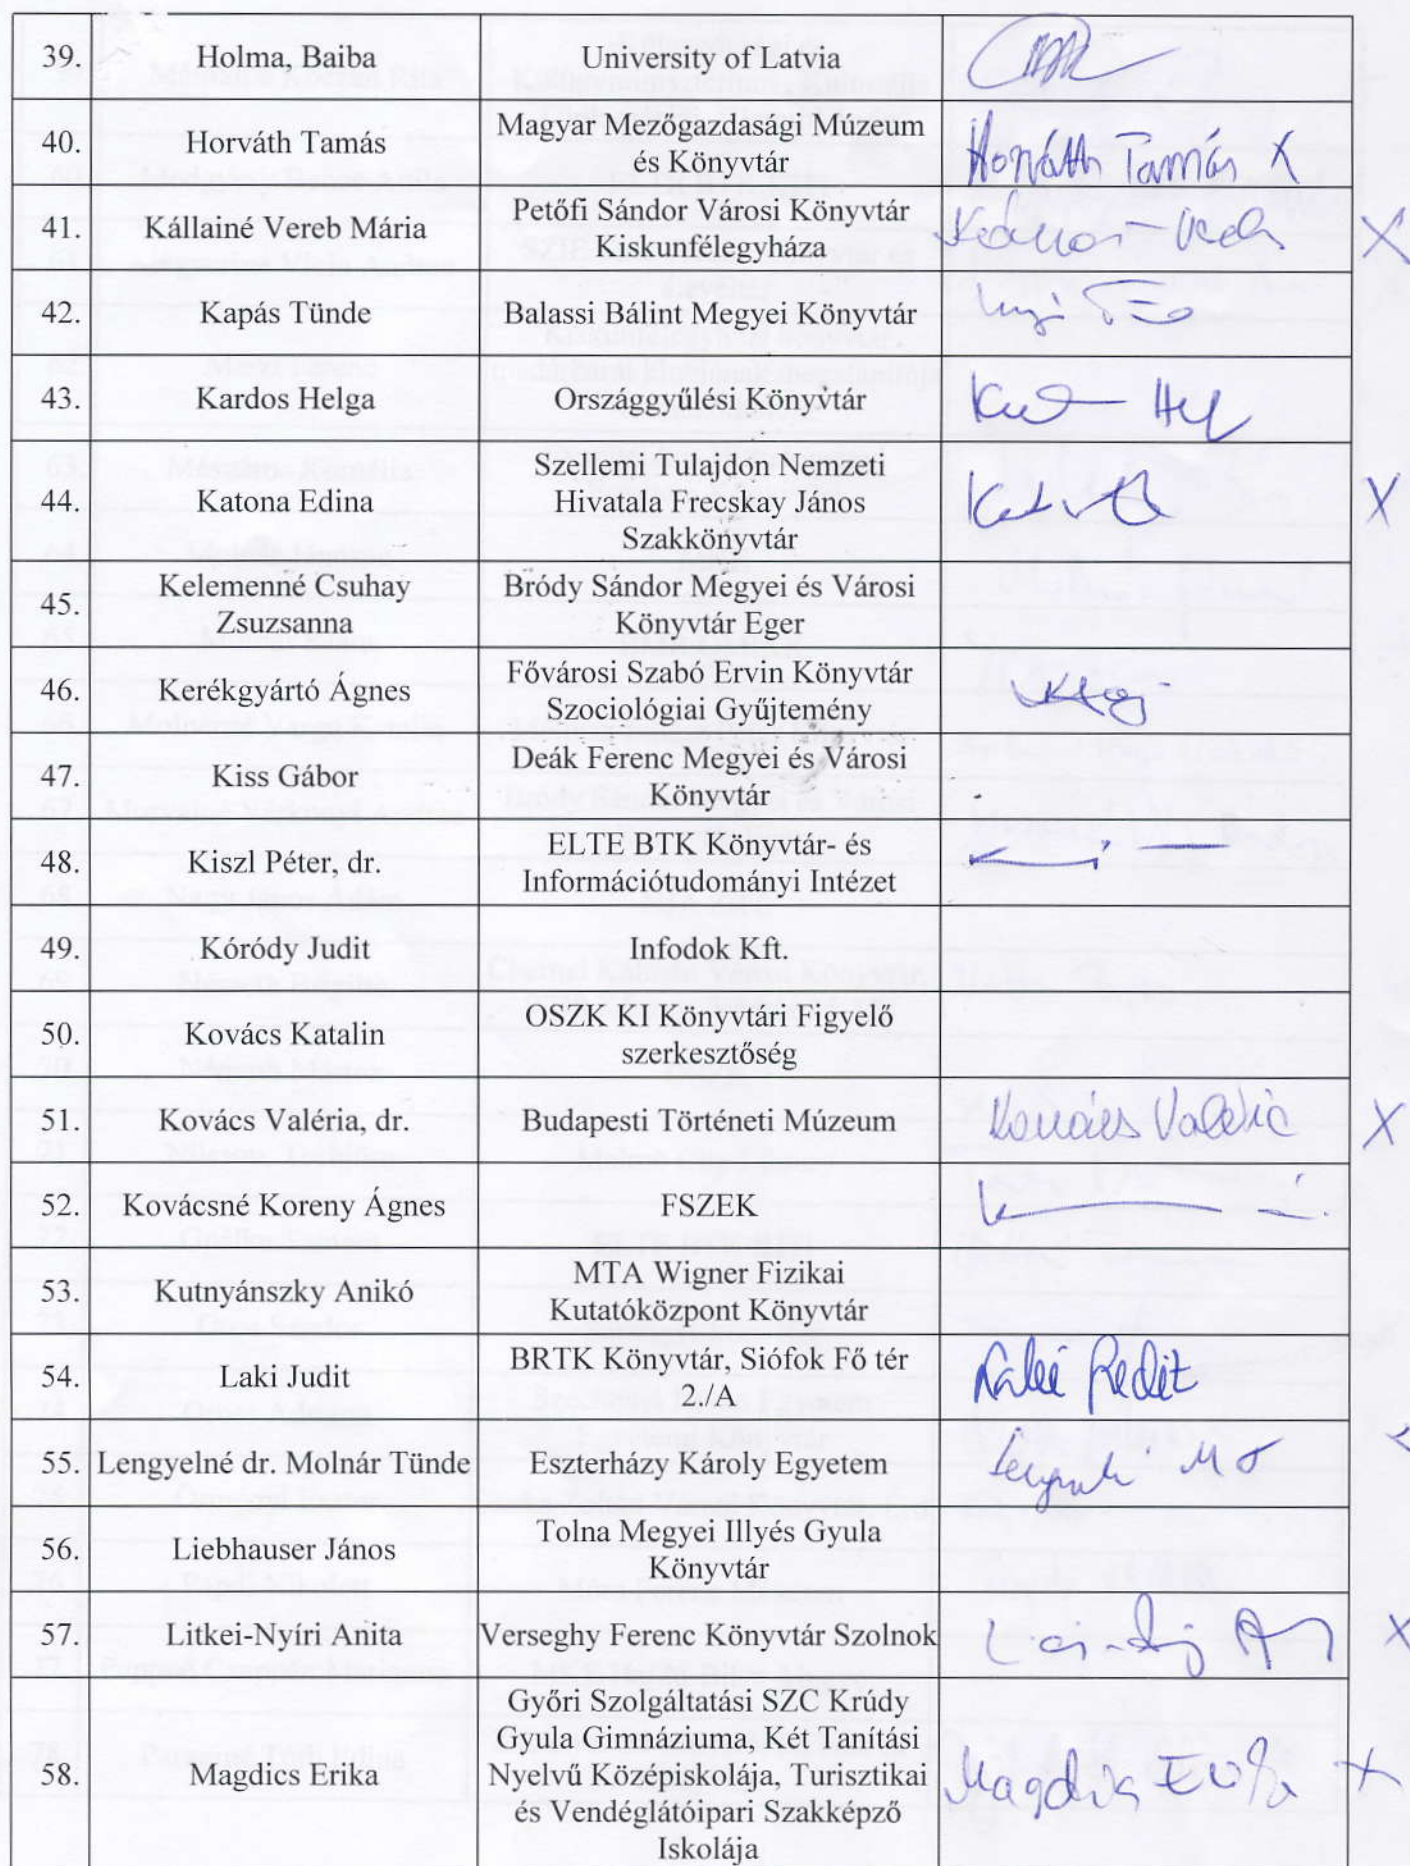 39. Holma, Baiba University of Latvia
40. Horváth Tamás Magyar Mezőgazdasági Múzeum
és Könyvtár Horváth Tamás X
41. Kállainé Vereb Mária Petőfi Sándor Városi Könyvtár
Kiskunfélegyháza X
42. Kapás Tünde Balassi Bálint Megyei Könyvtár
43. Kardos Helga Országgyűlési Könyvtár
44. Katona Edina Szellemi Tulajdon Nemzeti
Hivatala Frecskay János
Szakkönyvtár X
45. Kelemenné Csuhay
Zsuzsanna Bródy Sándor Megyei és Városi
Könyvtár Eger
46. Kerékgyártó Ágnes Fővárosi Szabó Ervin Könyvtár
Szociológiai Gyűjtemény
47. Kiss Gábor Deák Ferenc Megyei és Városi
Könyvtár
48. Kiszl Péter, dr. ELTE BTK Könyvtár- és
Információtudományi Intézet
49. Kóródy Judit Infodok Kft.
50. Kovács Katalin OSZK KI Könyvtári Figyelő
szerkesztőség
51. Kovács Valéria, dr. Budapesti Történeti Múzeum Kovács Valéria X
52. Kovácsné Koreny Ágnes FSZEK
53. Kutnyánszky Anikó MTA Wigner Fizikai
Kutatóközpont Könyvtár
54. Laki Judit BRTK Könyvtár, Siófok Fő tér
2./A Laki Judit
55. Lengyelné dr. Molnár Tünde Eszterházy Károly Egyetem
56. Liebhauser János Tolna Megyei Illyés Gyula
Könyvtár
57. Litkei-Nyíri Anita Verseghy Ferenc Könyvtár Szolnok X
58. Magdics Erika Győri Szolgáltatási SZC Krúdy
Gyula Gimnáziuma, Két Tanítási
Nyelvű Középiskolája, Turisztikai
és Vendéglátóipari Szakképző
Iskolája Magdics Erika X